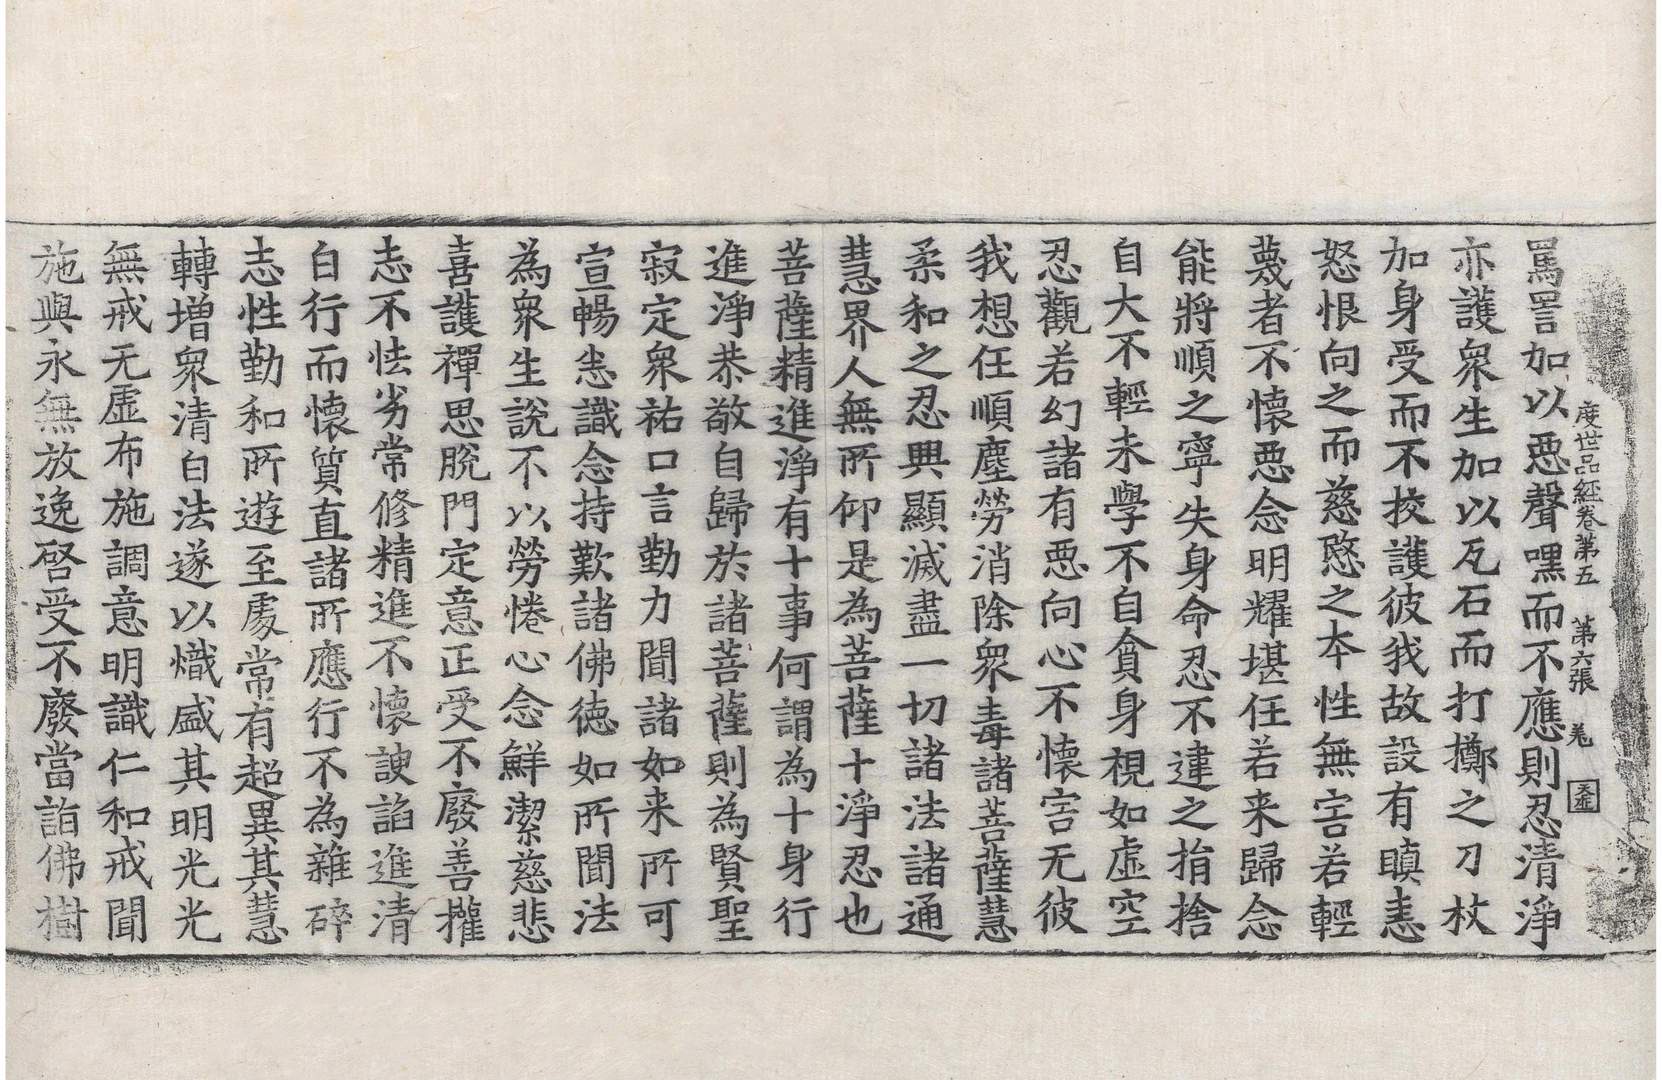 度世品經卷第五　第六張　
罵詈加以惡聲嘿而不應則忍清淨
亦護眾生加以瓦石而打擲之刀杖
加身受而不挍護彼我故設有瞋恚
怒恨向之而慈愍之本性無害若輕
蔑者不懷惡念明耀堪任若来歸念
能將順之寧失身命忍不違之捐捨
自大不輕未學不自貪身視如虛空
忍觀若幻諸有惡向心不懷害无彼
我想任順塵勞消除眾毒諸菩薩慧
柔和之忍興顯滅盡一切諸法諸通
慧界人無所仰是為菩薩十淨忍也
菩薩精進淨有十事何謂為十身行
進淨恭敬自歸於諸菩薩則為賢聖
寂定眾祐口言勤力聞諸如来所可
宣暢恙識念持歎諸佛德如所聞法
為眾生說不以勞惓心念鮮潔慈悲
喜護禪思脫門定意正受不廢善權
志不怯劣常修精進不懷諛諂進清
白行而懷質直諸所應行不為雜碎
志性勤和所遊至處常有超異其慧
轉增眾清白法遂以熾盛其明光光
無戒无虛布施調意明識仁和戒聞
施與永無放逸啓受不廢當詣佛樹